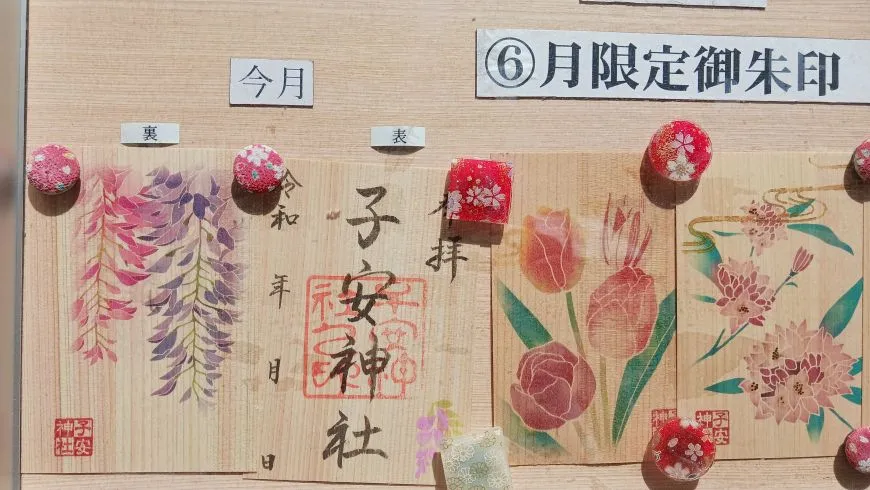 ⑥月限定御朱印
今月
裏
表
拝
子安神社
令和 年 月 日
子安神社
子安
神社
子安
神社